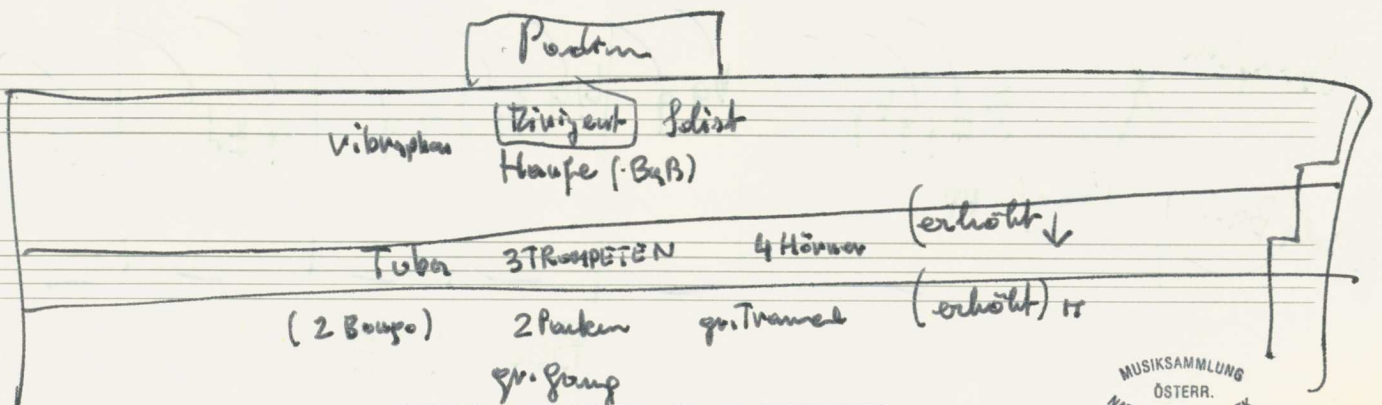 Podium
Vibraphon Dirigent Solist
Harfe (. BaB)
(erhöht ↓
Tuba 3 TROMPETEN 4 Hörner
(2 Bongo) 2 Pauken gr. Trommel (erhöht) II
gr. Gong
MUSIKSAMMLUNG
ÖSTERR.